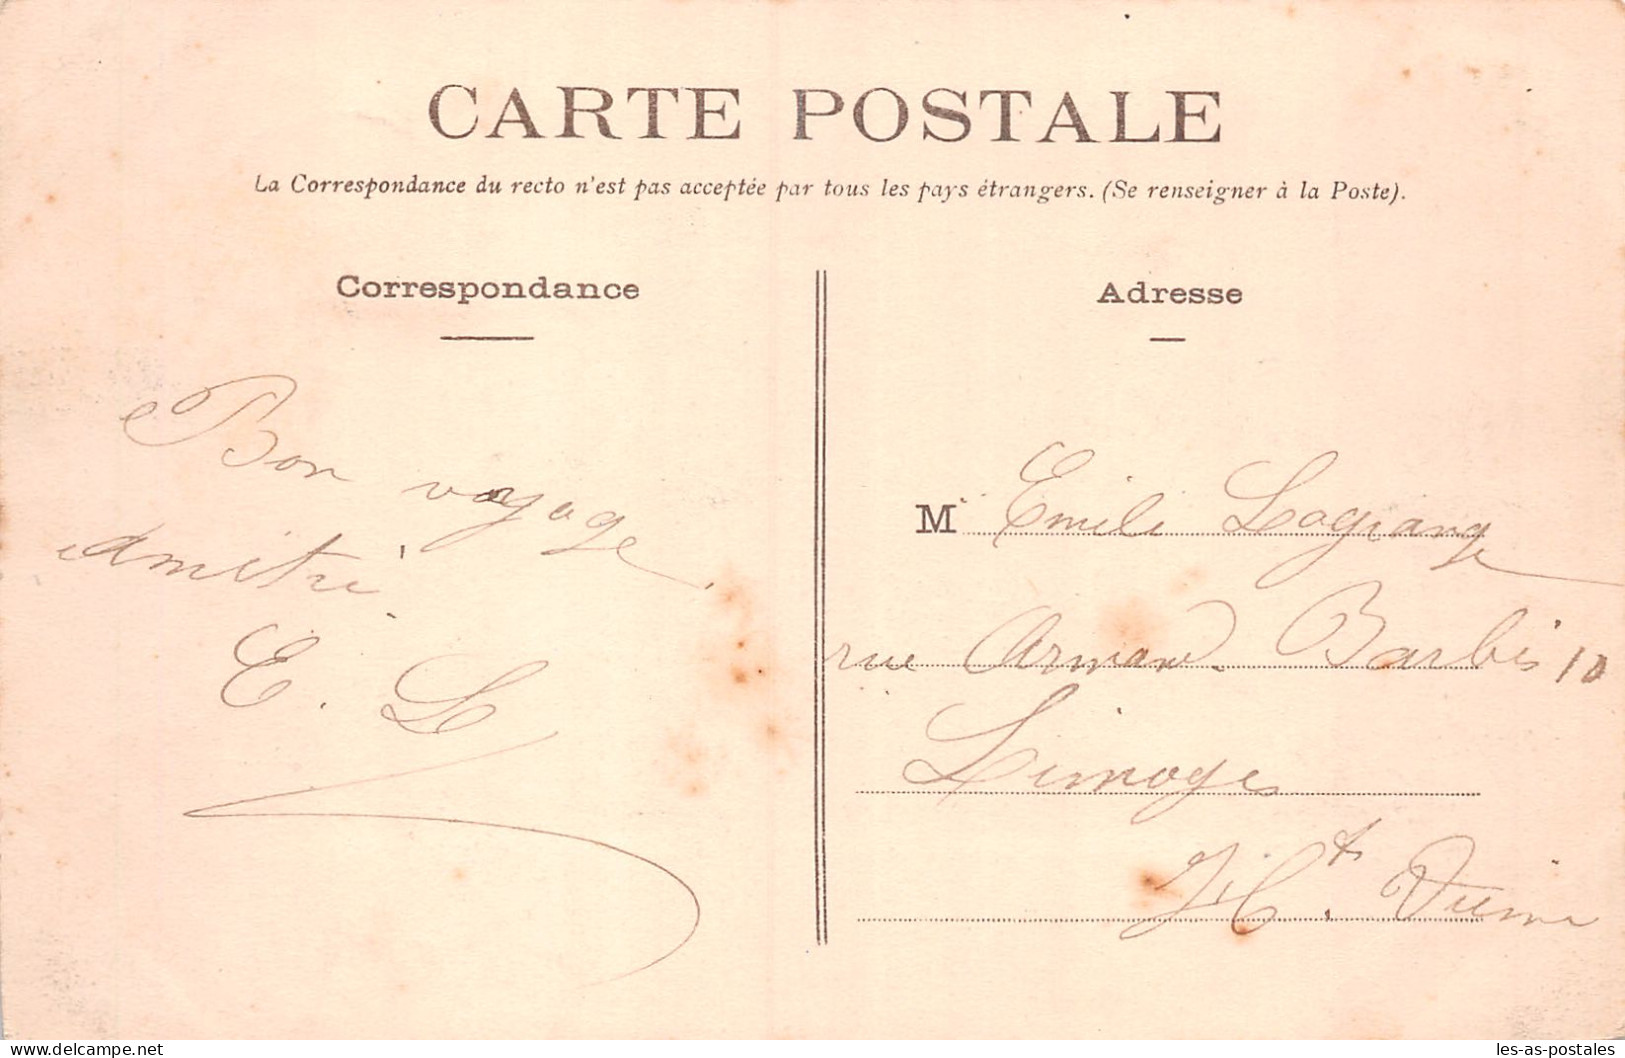 CARTE POSTALE
La Correspondance du recto n'est pas acceptée par tous les pays étrangers. (Se renseigner à la Poste).
Correspondance
Bon voyage
Amitié.
E. L
Adresse
M Emile Lagrange
rue Armand Barbès 10
Limoges
Hte. Vienne
www.delcampe.net
les-as-postales